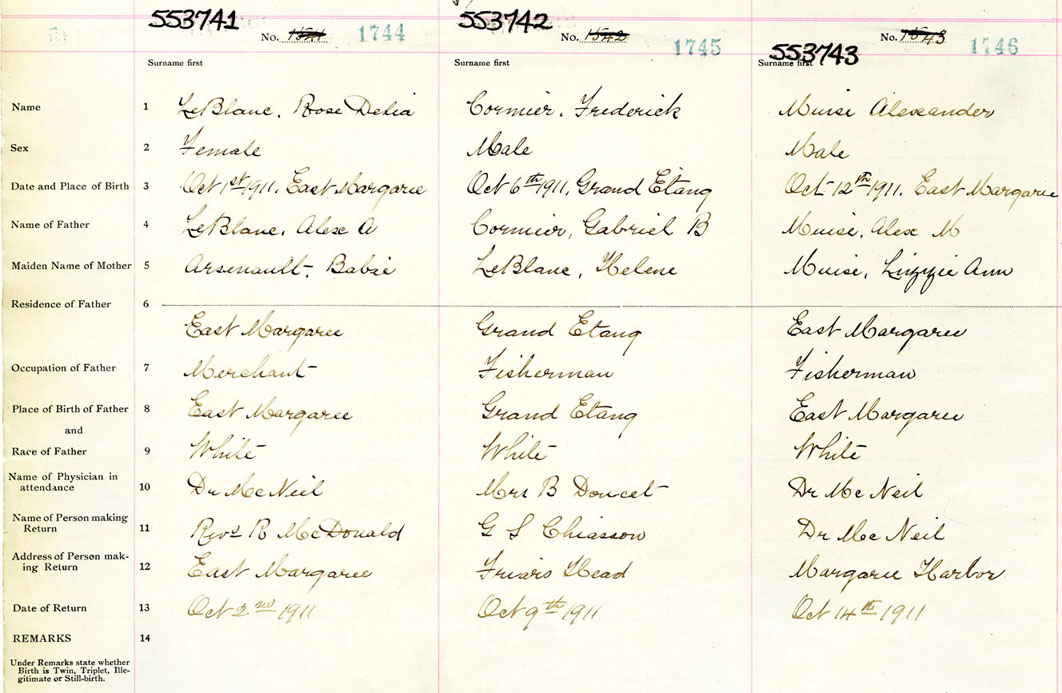 553741 553742
No. 1541 1744 No. 1542 1745 No. 1543 1746
553743
Surname first Surname first Surname first
Name 1 LeBlanc, Rose Delia Cormier, Frederick Muise Alexander
Sex 2 Female Male Male
Date and Place of Birth 3 Oct 1st 1911, East Margaree Oct 6th 1911, Grand Etang Oct 12th 1911, East Margaree
Name of Father 4 LeBlanc, Alex A Cormier, Gabriel B Muise, Alex M
Maiden Name of Mother 5 Arsenault, Babie LeBlanc, Helene Muise, Lizzie Ann
Residence of Father 6
East Margaree Grand Etang East Margaree
Occupation of Father 7 Merchant Fisherman Fisherman
Place of Birth of Father 8 East Margaree Grand Etang East Margaree
and
Race of Father 9 White White White
Name of Physician in
attendance 10 Dr McNeil Mrs B Doucet Dr McNeil
Name of Person making
Return 11 Revd R McDonald G S Chiasson Dr McNeil
Address of Person mak-
ing Return 12 East Margaree Friars Head Margaree Harbor
Date of Return 13 Oct 2nd 1911 Oct 9th 1911 Oct 14th 1911
REMARKS 14
Under Remarks state whether
Birth is Twin, Triplet, Ille-
gitimate or Still-birth.